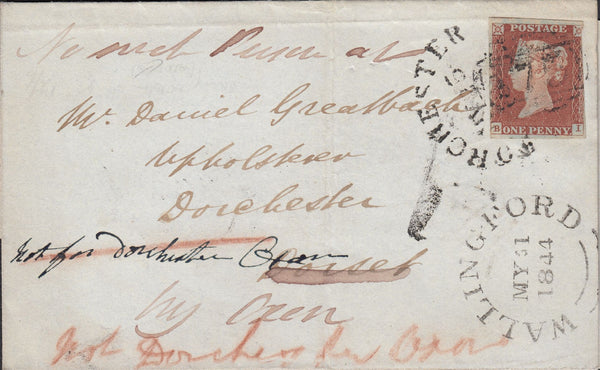 No such Person at
Mr. Daniel Greatbach
Upholsterer
Dorchester
Not for Dorchester Oxon
Dorset
try Oxon
Not Dorchester Oxon
POSTAGE
B ONE PENNY I
DORCHESTER
WALLINGFORD
MY 31
1844